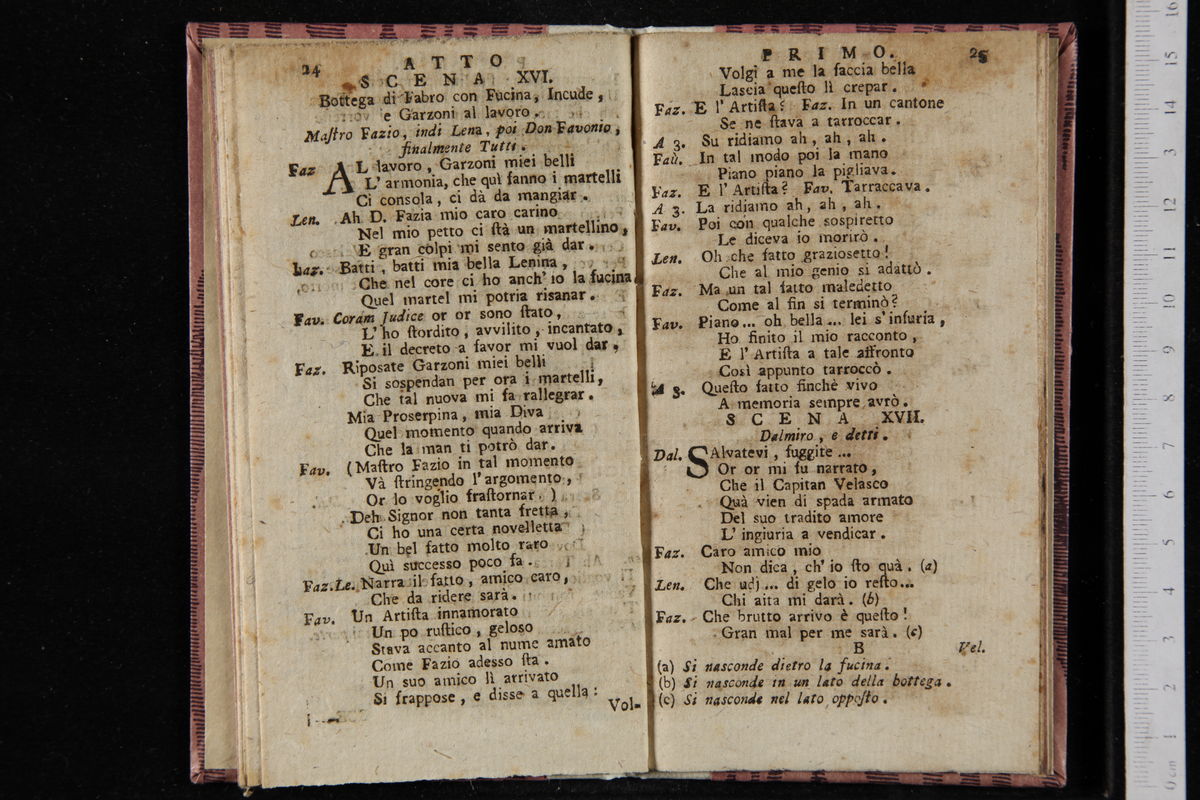 24
ATTO
SCENA XVI.
Bottega di Fabro con Fucina, Incude,
e Garzoni al lavoro.
Maſtro Fazio, indi Lena, poi Don Favonio,
finalmente Tutti.
Faz AL lavoro, Garzoni miei belli
L' armonia, che quì fanno i martelli
Ci consola, ci dà da mangiar.
Len. Ah D. Fazia mio caro carino
Nel mio petto ci ſtà un martellino,
E gran colpi mi sento già dar.
Faz. Batti, batti mia bella Lenina,
Che nel core ci ho anch' io la fucina
Quel martel mi potria risanar.
Fav. Coram Judice or or sono ſtato,
L' ho ſtordito, avvilito, incantato,
E il decreto a favor mi vuol dar.
Faz. Riposate Garzoni miei belli
Si sospendan per ora i martelli,
Che tal nuova mi fa rallegrar.
Mia Proserpina, mia Diva
Quel momento quando arriva
Che la man ti potrò dar.
Fav. (Maſtro Fazio in tal momento
Và ſtringendo l' argomento,
Or lo voglio fraſtornar.)
Deh Signor non tanta fretta,
Ci ho una certa novelletta
Un bel fatto molto raro
Quì successo poco fa.
Faz.Le. Narra il fatto, amico caro,
Che da ridere sarà.
Fav. Un Artiſta innamorato
Un po ruſtico, geloso
Stava accanto al nume amato
Come Fazio adesso ſta.
Un suo amico lì arrivato
Si frappose, e disse a quella:
Vol-
PRIMO.
25
Volgi a me la faccia bella
Lascia queſto lì crepar.
Faz. E l' Artiſta? Faz. In un cantone
Se ne ſtava a tarroccar.
A 3. Su ridiamo ah, ah, ah.
Fav. In tal modo poi la mano
Piano piano la pigliava.
Faz. E l' Artiſta? Fav. Tarraccava.
A 3. La ridiamo ah, ah, ah.
Fav. Poi con qualche sospiretto
Le diceva io morirò.
Len. Oh che fatto graziosetto!
Che al mio genio si adattò.
Faz. Ma un tal fatto maledetto
Come al fin si terminò?
Fav. Piano... oh bella... lei s' infuria,
Ho finito il mio racconto,
E l' Artiſta a tale affronto
Così appunto tarroccò.
A 3. Queſto fatto finchè vivo
A memoria sempre avrò.
SCENA XVII.
Dalmiro, e detti.
Dal. SAlvatevi, fuggite...
Or or mi fu narrato,
Che il Capitan Velasco
Quà vien di spada armato
Del suo tradito amore
L' ingiuria a vendicar.
Faz. Caro amico mio
Non dica, ch' io ſto quà. (a)
Len. Che udj... di gelo io reſto...
Chi aita mi darà. (b)
Faz. Che brutto arrivo è queſto!
Gran mal per me sarà. (c)
B
Vel.
(a) Si nasconde dietro la fucina.
(b) Si nasconde in un lato della bottega.
(c) Si nasconde nel lato oppoſto.
0 cm 1 2 3 4 5 6 7 8 9 10 11 12 13 14 15 16